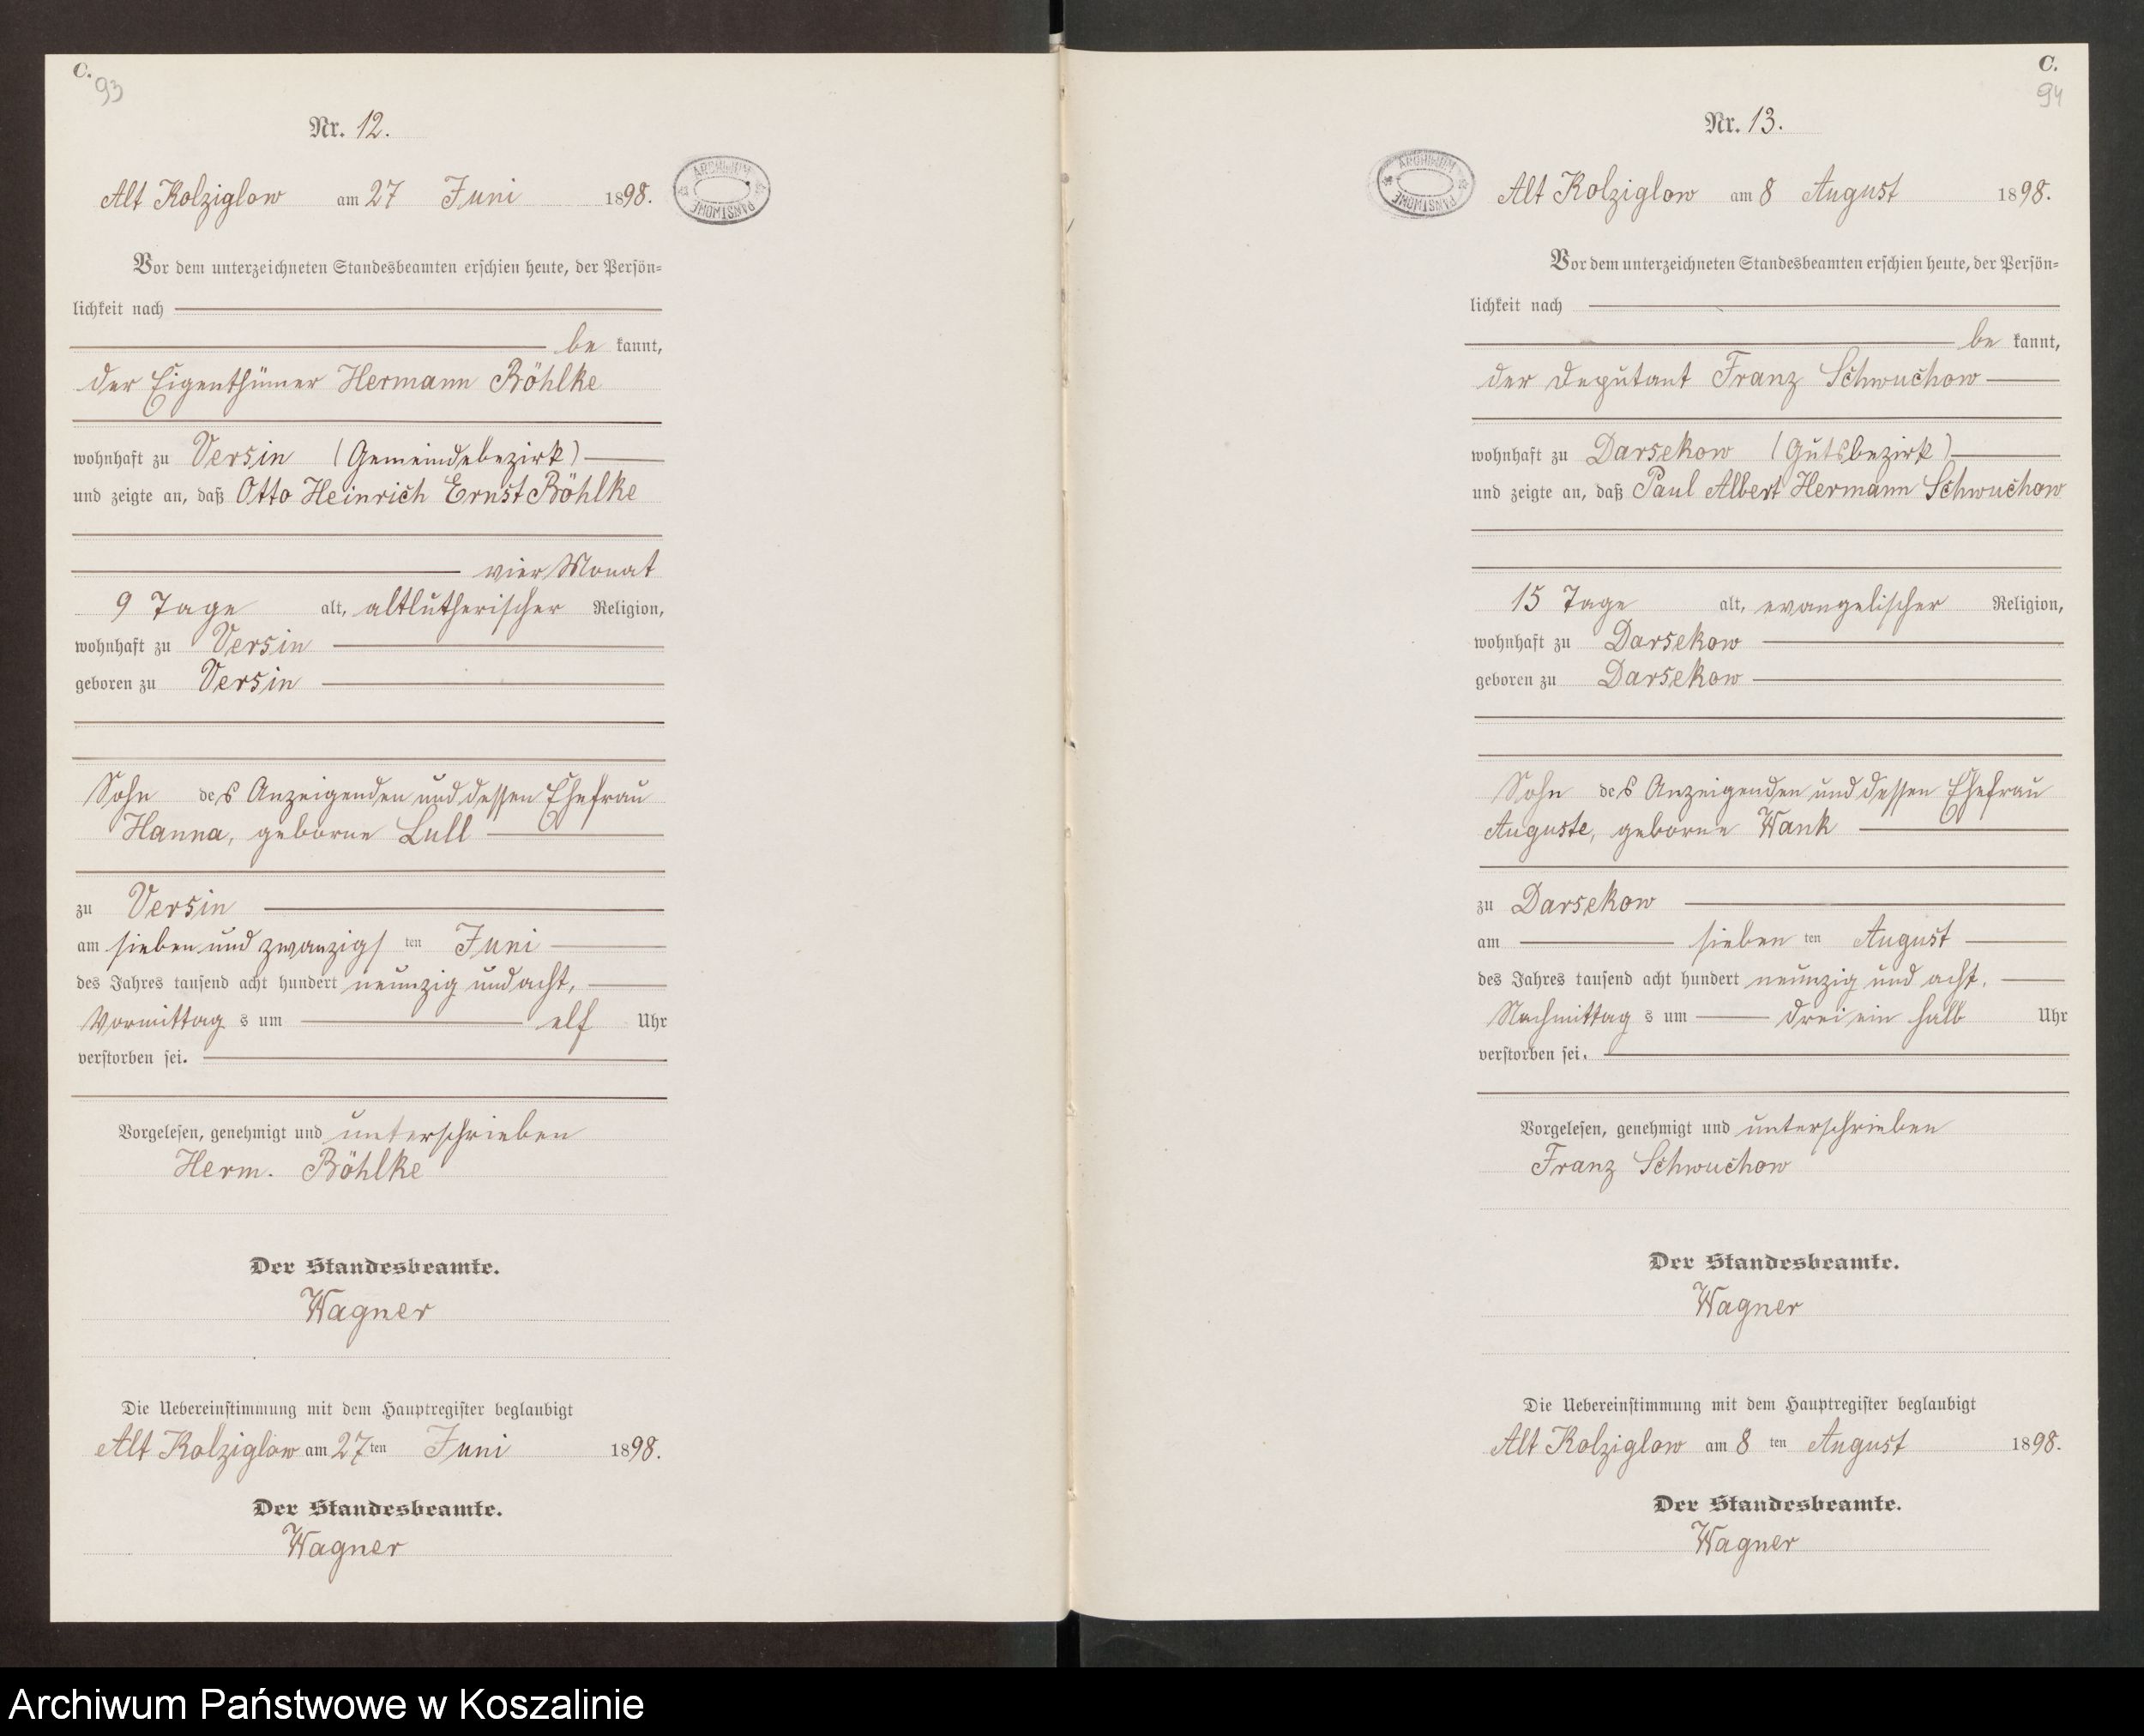 C.
93
Nr. 12.
Alt Kolziglow am 27 Juni 1898.
ARCHIWUM PAŃSTWOWE
Vor dem unterzeichneten Standesbeamten erschien heute, der Persön=
lichkeit nach
be kannt,
der Eigenthümer Hermann Böhlke
wohnhaft zu Versin (Gemeindebezirk)
und zeigte an, daß Otto Heinrich Ernst Böhlke
vier Monat
9 Tage alt, altlutherischer Religion,
wohnhaft zu Versin
geboren zu Versin
Sohn des Anzeigenden und dessen Ehefrau
Hanna, geborne Lull
zu Versin
am sieben und zwanzigs ten Juni
des Jahres tausend acht hundert neunzig und acht,
Vormittag s um elf Uhr
verstorben sei.
Vorgelesen, genehmigt und unterschrieben
Herm. Böhlke
Der Standesbeamte.
Wagner
Die Uebereinstimmung mit dem Hauptregister beglaubigt
Alt Kolziglow am 27 ten Juni 1898.
Der Standesbeamte.
Wagner
C.
94
Nr. 13.
ARCHIWUM PAŃSTWOWE
Alt Kolziglow am 8 August 1898.
Vor dem unterzeichneten Standesbeamten erschien heute, der Persön=
lichkeit nach
be kannt,
der Deputant Franz Schwuchow
wohnhaft zu Darsekow (Gutsbezirk)
und zeigte an, daß Paul Albert Hermann Schwuchow
15 Tage alt, evangelischer Religion,
wohnhaft zu Darsekow
geboren zu Darsekow
Sohn des Anzeigenden und dessen Ehefrau
Auguste, geborne Wank
zu Darsekow
am sieben ten August
des Jahres tausend acht hundert neunzig und acht,
Nachmittag s um drei ein halb Uhr
verstorben sei.
Vorgelesen, genehmigt und unterschrieben
Franz Schwuchow
Der Standesbeamte.
Wagner
Die Uebereinstimmung mit dem Hauptregister beglaubigt
Alt Kolziglow am 8 ten August 1898.
Der Standesbeamte.
Wagner
Archiwum Państwowe w Koszalinie